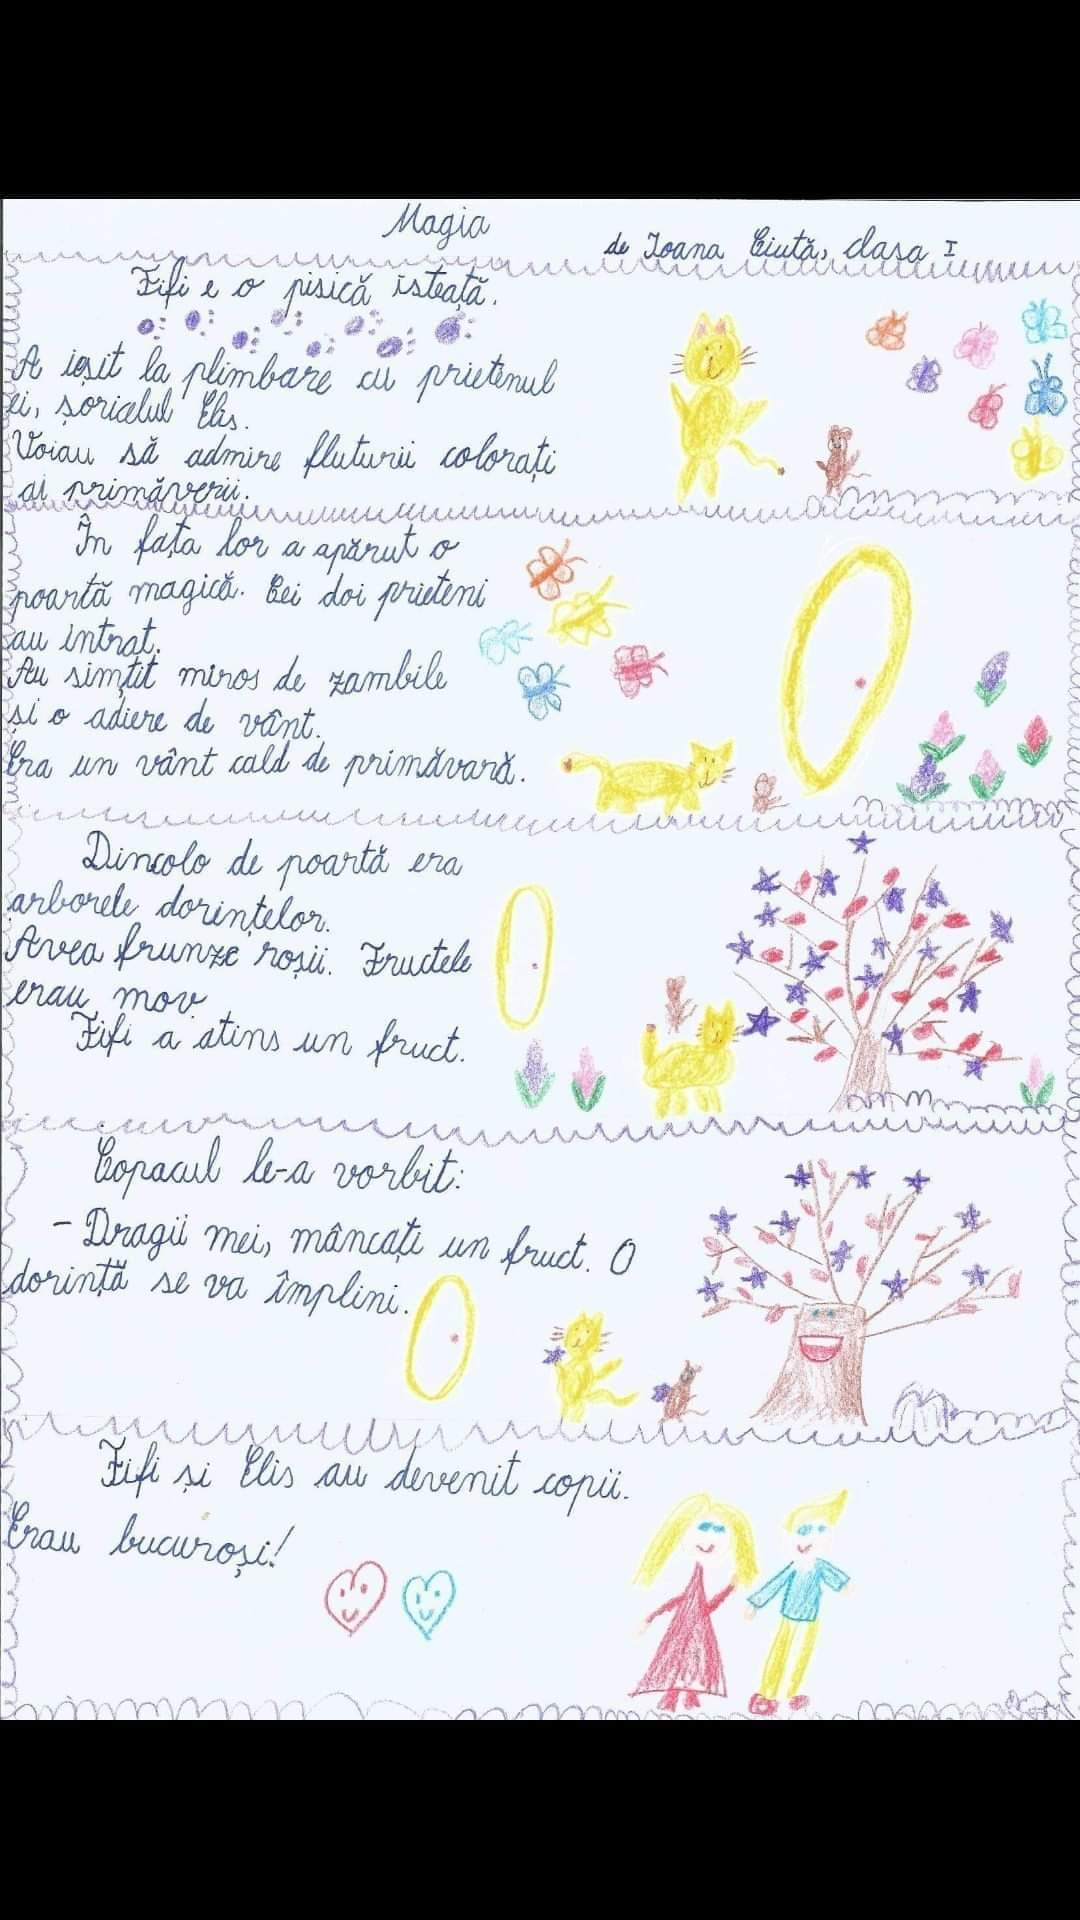 Magia
de Ioana Ciută, clasa I
Fifi e o pisică isteață.
A ieșit la plimbare cu prietenul
ei, șoricelul Elis.
Voiau să admire fluturii colorați
ai primăverii.
În fața lor a apărut o
poartă magică. Cei doi prieteni
au intrat.
Au simțit miros de zambile
și o adiere de vânt.
Era un vânt cald de primăvară.
Dincolo de poartă era
arborele dorințelor.
Avea frunze roșii. Fructele
erau mov.
Fifi a atins un fruct.
Copacul le-a vorbit:
- Dragii mei, mâncați un fruct. O
dorință se va împlini.
Fifi și Elis au devenit copii.
Erau bucuroși!